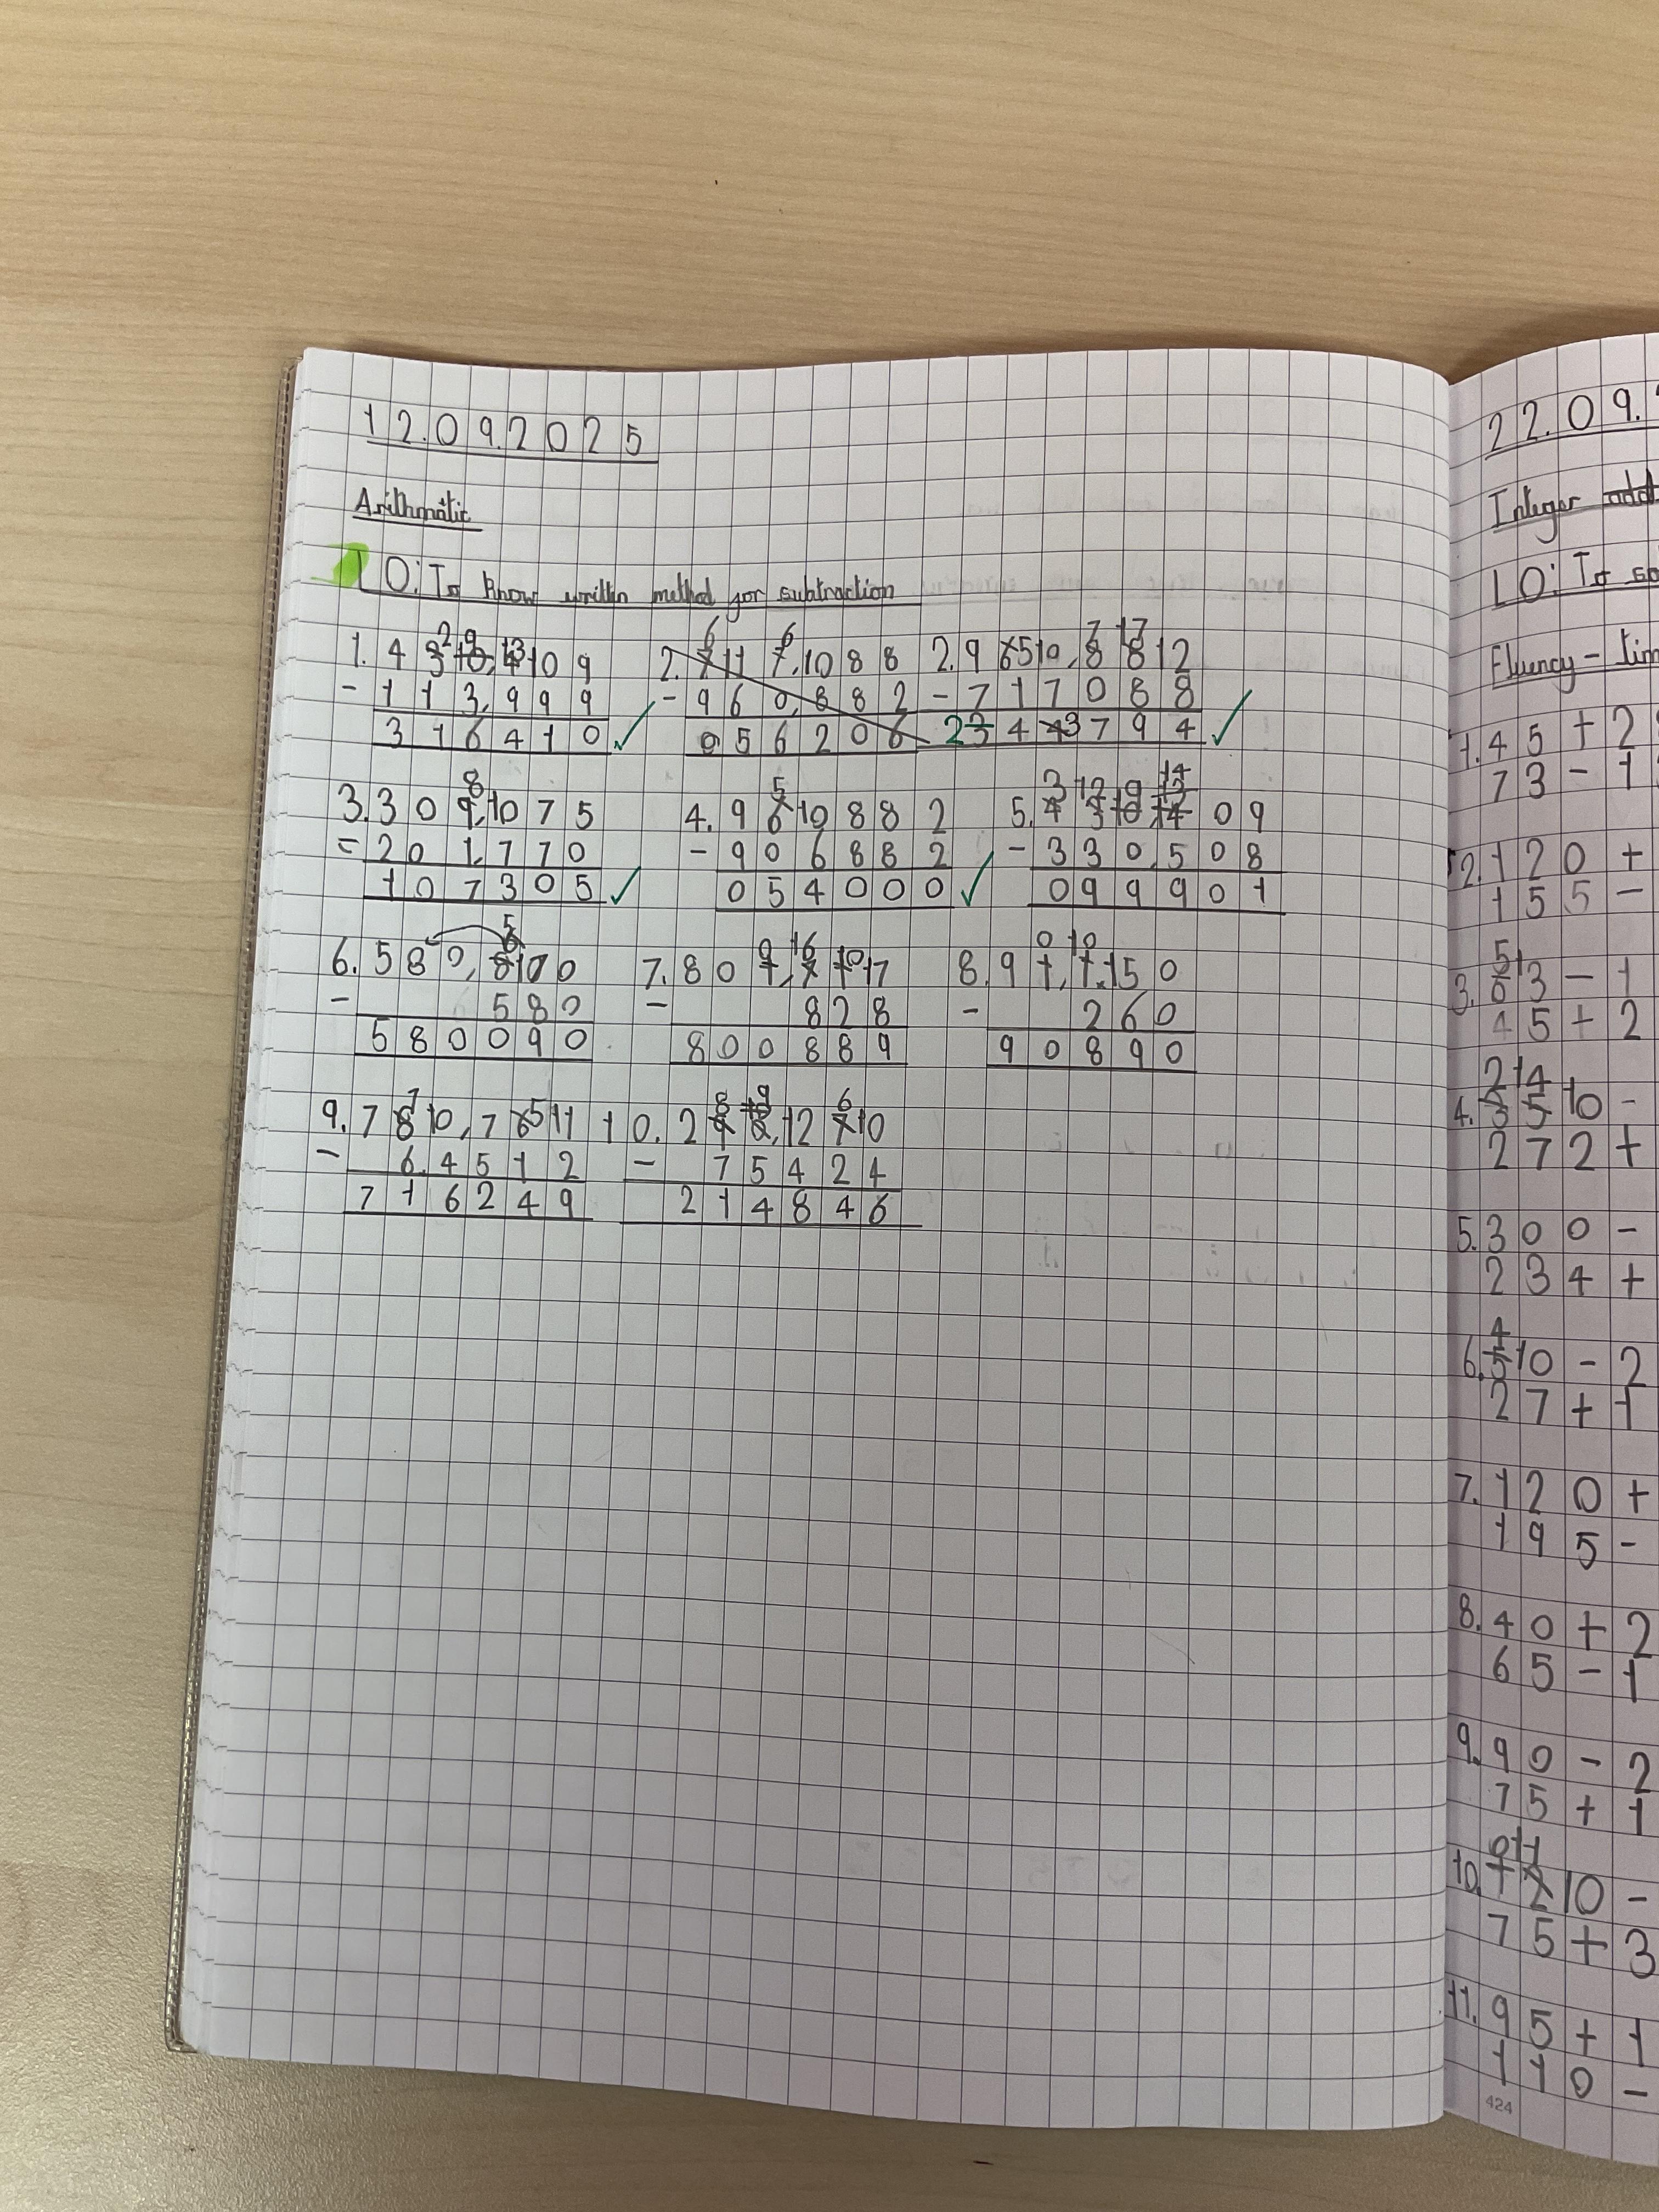 12.09.2025
Arithmatic
LO: To know written method for subtraction
1. 4 3 10, 4 10 9
2 9 13
- 1 1 3, 9 9 9
3 1 6 4 1 0 ✓
2. 7 11 7, 10 8 8
6 6
- 9 6 0, 8 8 2
0 5 6 2 0 6
2. 9 6 5 10, 8 8 12
7 17
- 7 1 7 0 8 8
2 3 4 4 3 7 9 4 ✓
3. 3 0 9, 10 7 5
8
= 2 0 1, 7 7 0
1 0 7 3 0 5 ✓
4. 9 6 10 8 8 2
5
- 9 0 6 8 8 2
0 5 4 0 0 0 ✓
5. 4 3 10, 14 0 9
3 12 9 13 14
- 3 3 0, 5 0 8
0 9 9 9 0 1
6. 5 8 0, 6 10 0
5
- 5 8 0
5 8 0 0 9 0
7. 8 0 1, 7 1 17
0 16 10
- 8 2 8
8 0 0 8 8 9
8. 9 1, 1 15 0
0 10
- 2 6 0
9 0 8 9 0
9. 7 8 10, 7 6 5 11
7
- 6. 4 5 1 2
7 1 6 2 4 9
10. 2 9 0, 12 7 10
8 9 10 6
- 7 5 4 2 4
2 1 4 8 4 6
22.09.
Integer add
LO: To so
Fluency - tim
1. 45 + 2
73 - 1
2. 120 +
155 -
3. 6 13 - 1
5
45 + 2
4. 3 5 10 -
2 14
272 +
5. 300 -
234 +
6. 5 10 - 2
4
27 + 1
7. 120 +
195 -
8. 40 + 2
65 - 1
9. 90 - 2
75 + 1
10. 1 2 10 -
0 11
75 + 3
11. 95 + 1
110 -
424